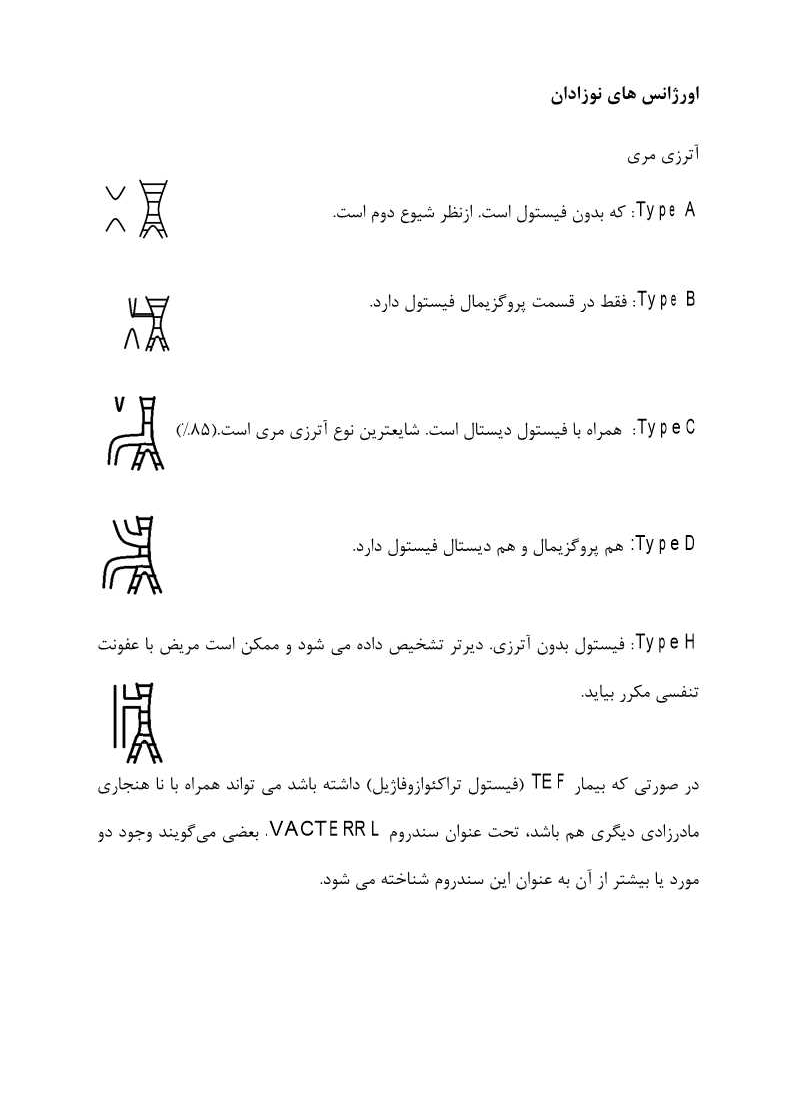 اورژانس های نوزادان
آترزی مری
Type A: که بدون فیستول است. ازنظر شیوع دوم است.
Type B: فقط در قسمت پروگزیمال فیستول دارد.
Type C: همراه با فیستول دیستال است. شایعترین نوع آترزی مری است.(۸۵٪)
Type D: هم پروگزیمال و هم دیستال فیستول دارد.
Type H: فیستول بدون آترزی. دیرتر تشخیص داده می شود و ممکن است مریض با عفونت
تنفسی مکرر بیاید.
در صورتی که بیمار TEF (فیستول تراکئوازوفاژیل) داشته باشد می تواند همراه با نا هنجاری
مادرزادی دیگری هم باشد، تحت عنوان سندروم VACTERRL. بعضی می‌گویند وجود دو
مورد یا بیشتر از آن به عنوان این سندروم شناخته می شود.